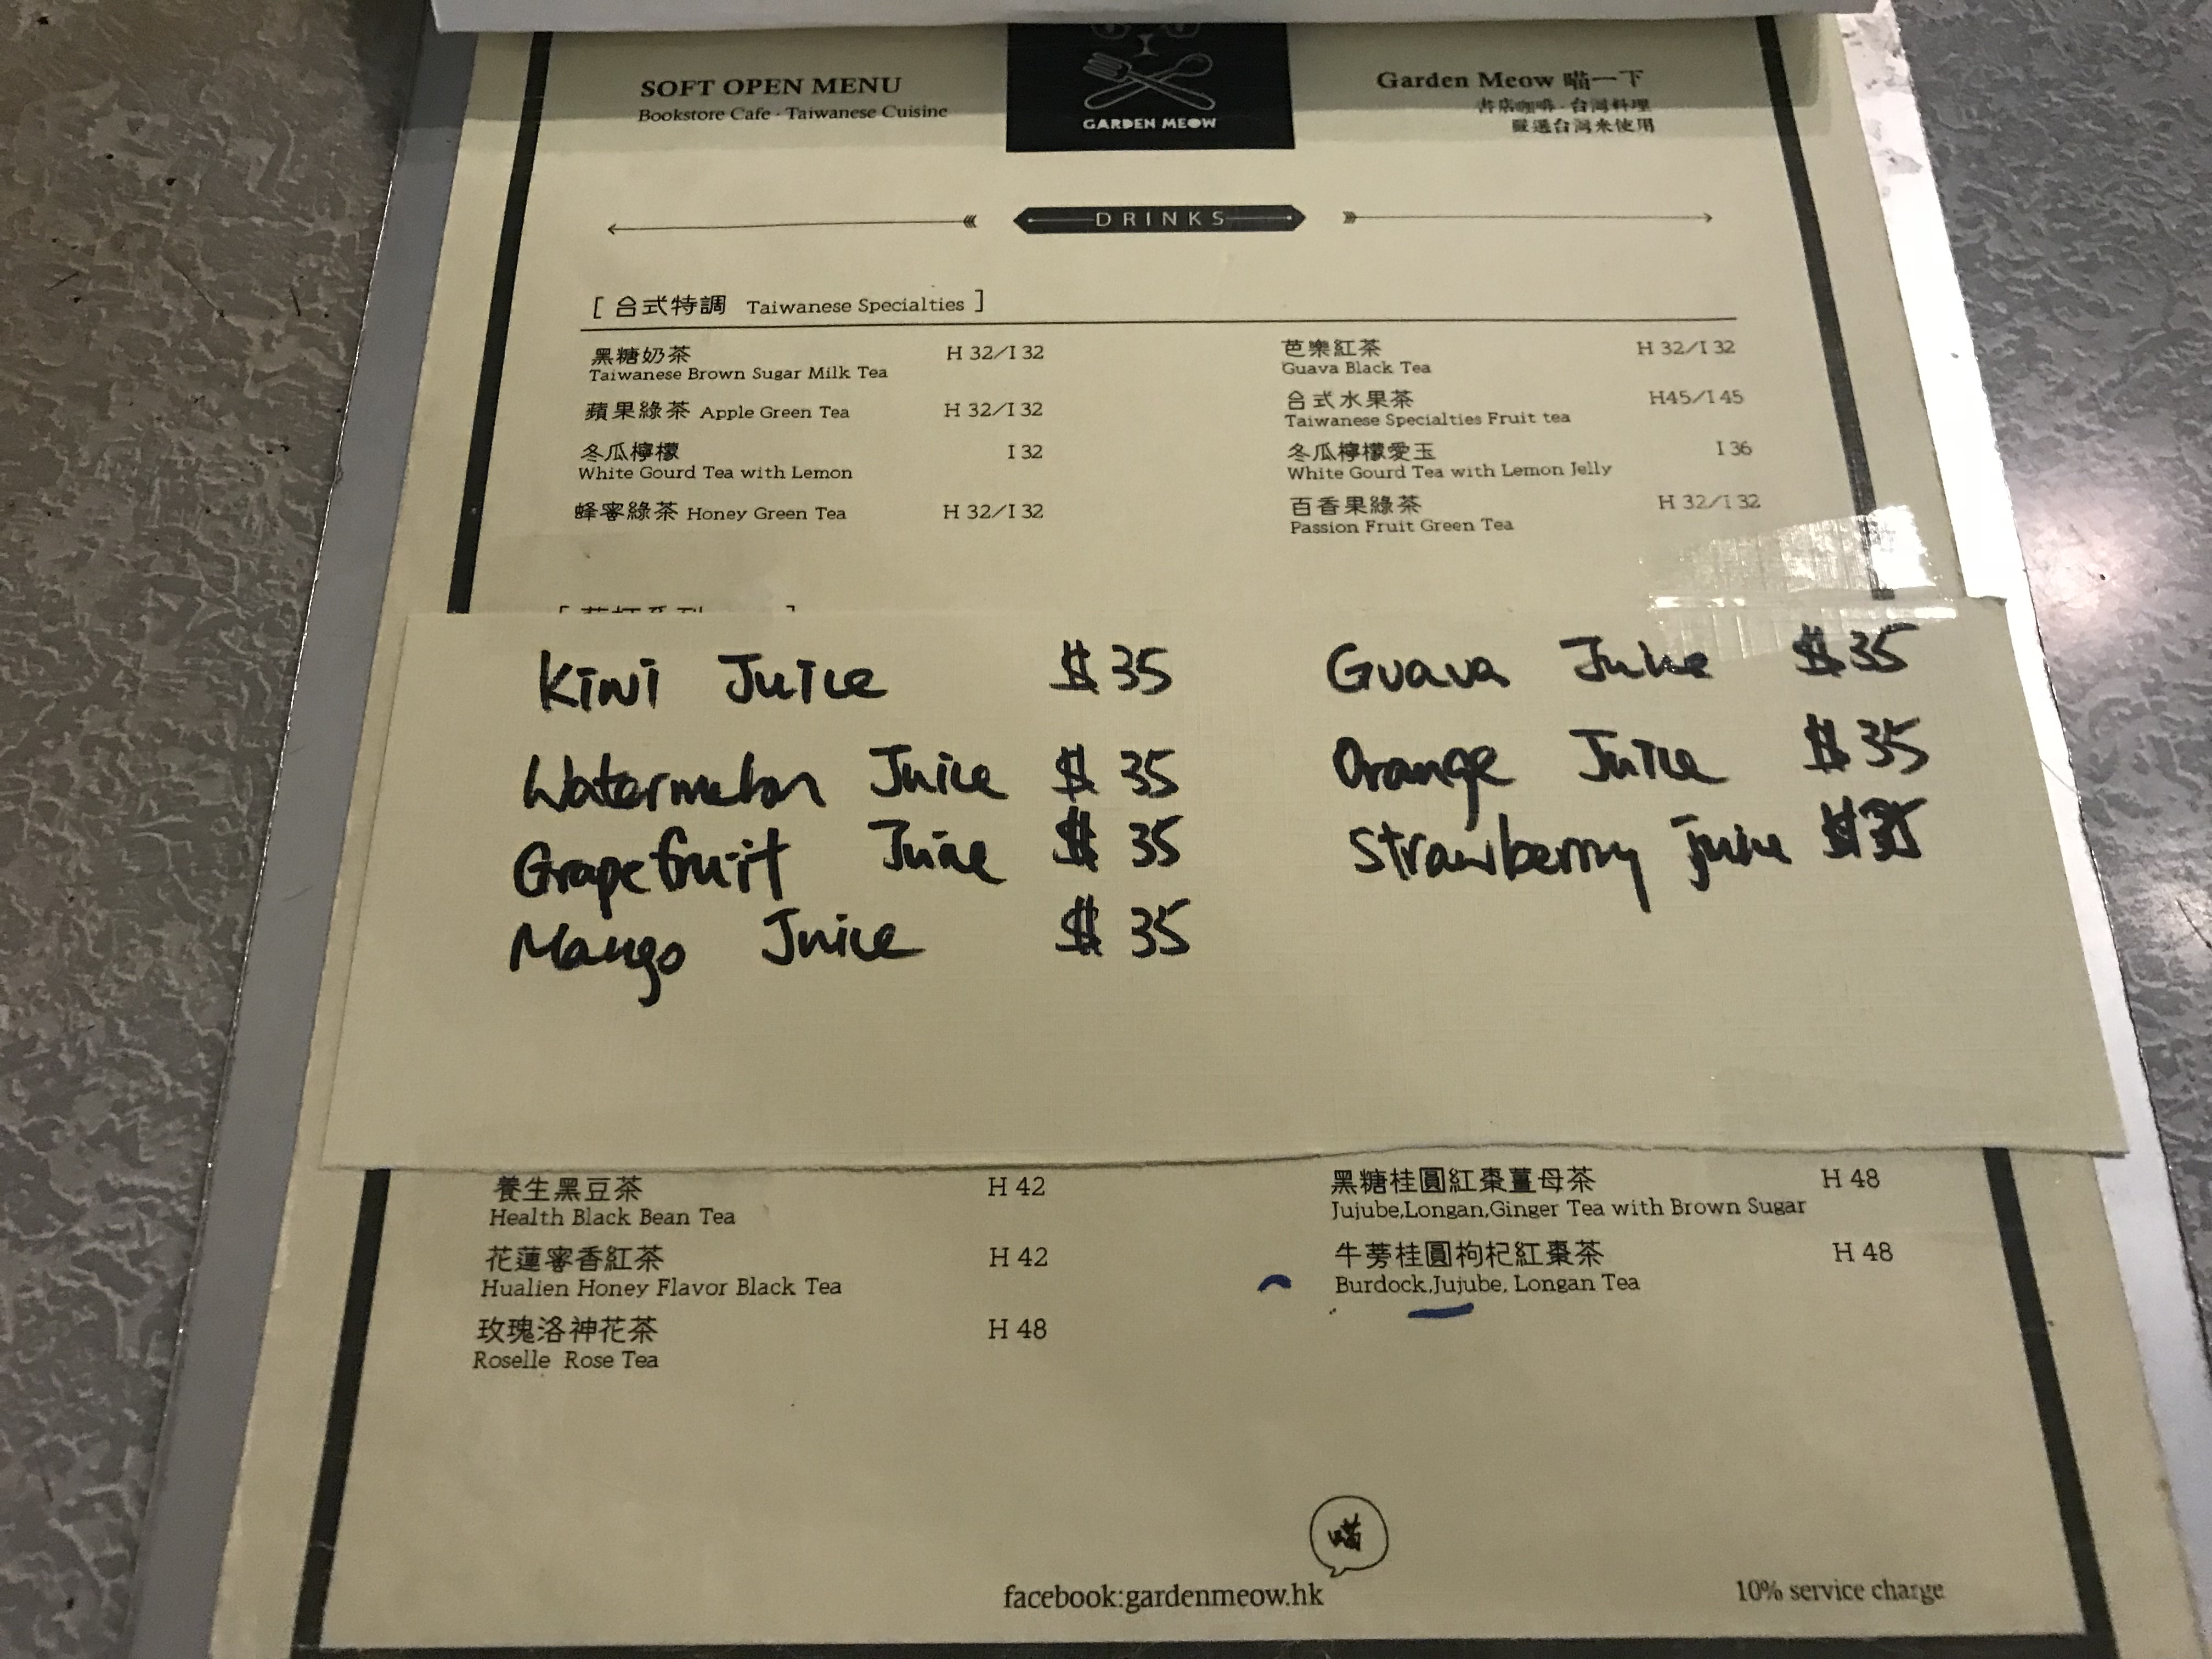 SOFT OPEN MENU
Bookstore Cafe · Taiwanese Cuisine
GARDEN MEOW
Garden Meow 喵一下
書店咖啡 · 台灣料理
嚴選台灣米使用
DRINKS
[ 台式特調 Taiwanese Specialties ]
黑糖奶茶 H 32/I 32
Taiwanese Brown Sugar Milk Tea
蘋果綠茶 Apple Green Tea H 32/I 32
冬瓜檸檬 I 32
White Gourd Tea with Lemon
蜂蜜綠茶 Honey Green Tea H 32/I 32
芭樂紅茶 H 32/I 32
Guava Black Tea
台式水果茶 H45/I 45
Taiwanese Specialties Fruit tea
冬瓜檸檬愛玉 I 36
White Gourd Tea with Lemon Jelly
百香果綠茶 H 32/I 32
Passion Fruit Green Tea
Kiwi Juice $ 35
Watermelon Juice $ 35
Grapefruit Juice $ 35
Mango Juice $ 35
Guava Juice $ 35
Orange Juice $ 35
Strawberry juice $ 35
養生黑豆茶 H 42
Health Black Bean Tea
花蓮蜜香紅茶 H 42
Hualien Honey Flavor Black Tea
玫瑰洛神花茶 H 48
Roselle Rose Tea
黑糖桂圓紅棗薑母茶 H 48
Jujube,Longan,Ginger Tea with Brown Sugar
牛蒡桂圓枸杞紅棗茶 H 48
Burdock,Jujube, Longan Tea
喵
facebook:gardenmeow.hk
10% service charge